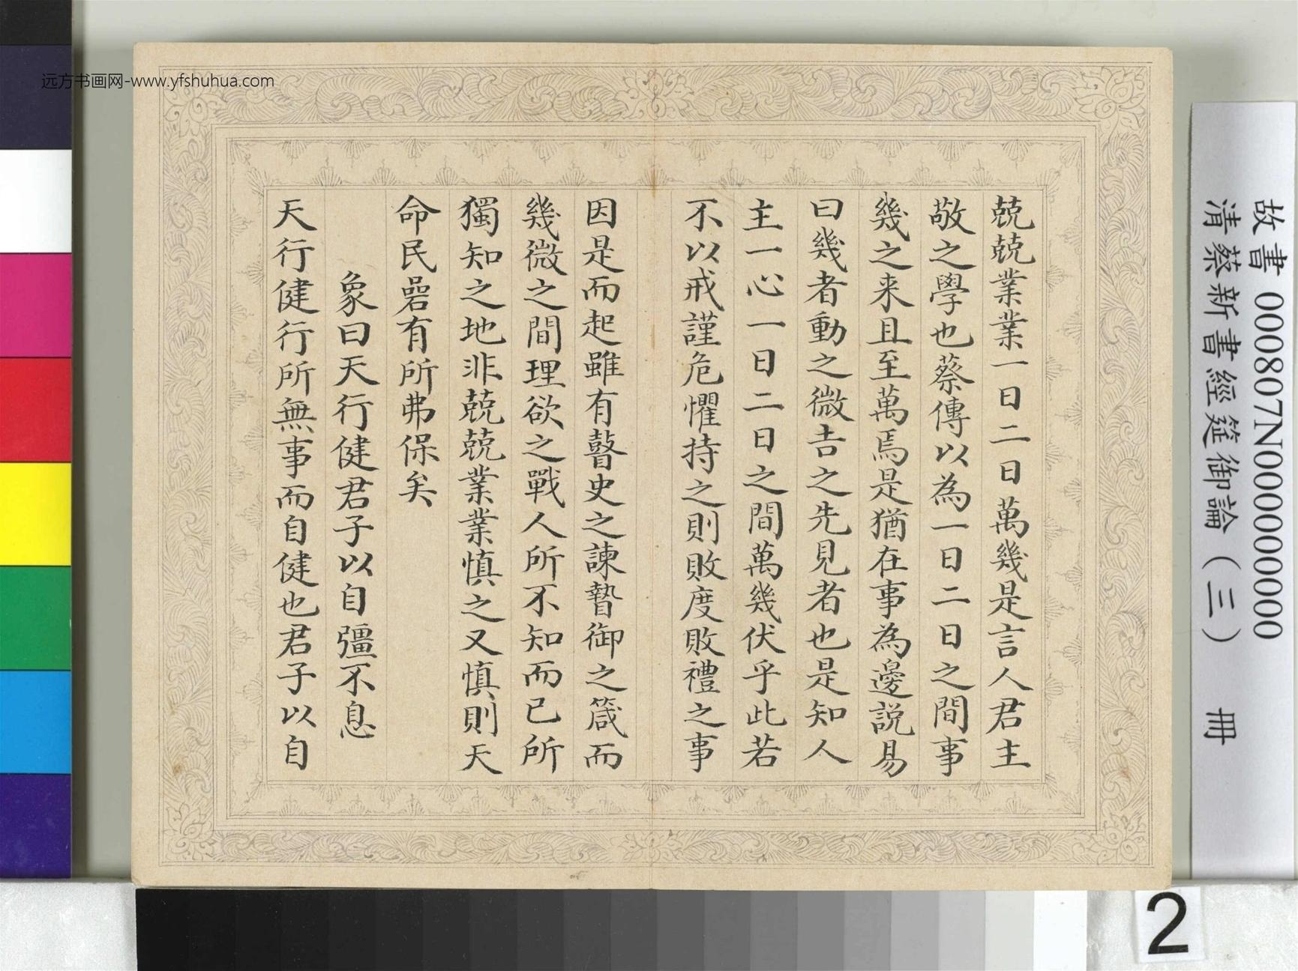 远方书画网-www.yfshuhua.com
兢兢業業一日二日萬幾是言人君主
敬之學也蔡傳以為一日二日之間事
幾之来且至萬焉是猶在事為邊説易
曰幾者動之微吉之先見者也是知人
主一心一日二日之間萬幾伏乎此若
不以戒謹危懼持之則敗度敗禮之事
因是而起雖有瞽史之諫暬御之箴而
幾微之間理欲之戰人所不知而已所
獨知之地非兢兢業業慎之又慎則天
命民碞有所弗保矣
象曰天行健君子以自彊不息
天行健行所無事而自健也君子以自
故書 000807N000000000
清蔡新書經筵御論(三) 冊
2